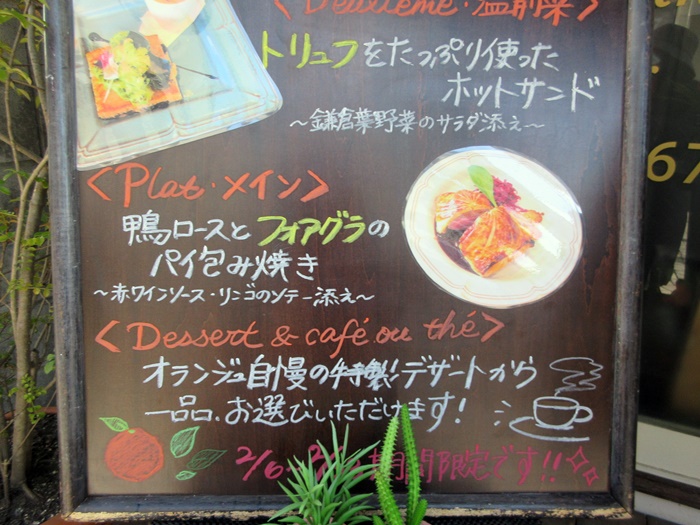 <Deuxième・温前菜>
トリュフをたっぷり使った
ホットサンド
～鎌倉葉野菜のサラダ添え～
<Plat・メイン>
鴨ロースとフォアグラの
パイ包み焼き
～赤ワインソース・リンゴのソテー添え～
<Dessert & café ou thé>
オランジュ自慢の特製デザートから
一品、お選びいただけます!
2/6 期間限定です!!
67